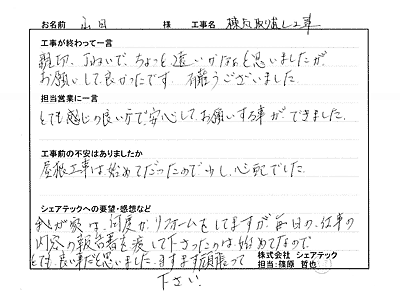 お名前 山田 様 工事名 棟瓦取り直し工事
工事が終わって一言
親切、ていねいで、ちょっと遠いかなぁと思いましたが
お願いして良かったです。有難うございました。
担当営業に一言
とても感じの良い方で、安心してお願いする事ができました。
工事前の不安はありましたか
屋根工事は始めてだったので少し心配でした。
シェアテックへの要望・感想など
我が家は、何度かリフォームをしてますが、毎日の、仕事の
内容の報告書を渡して下さったのは、始めてなので
とても良い事だと思いました。ますます頑張って
下さい。
株式会社 シェアテック
担当:篠原 哲也